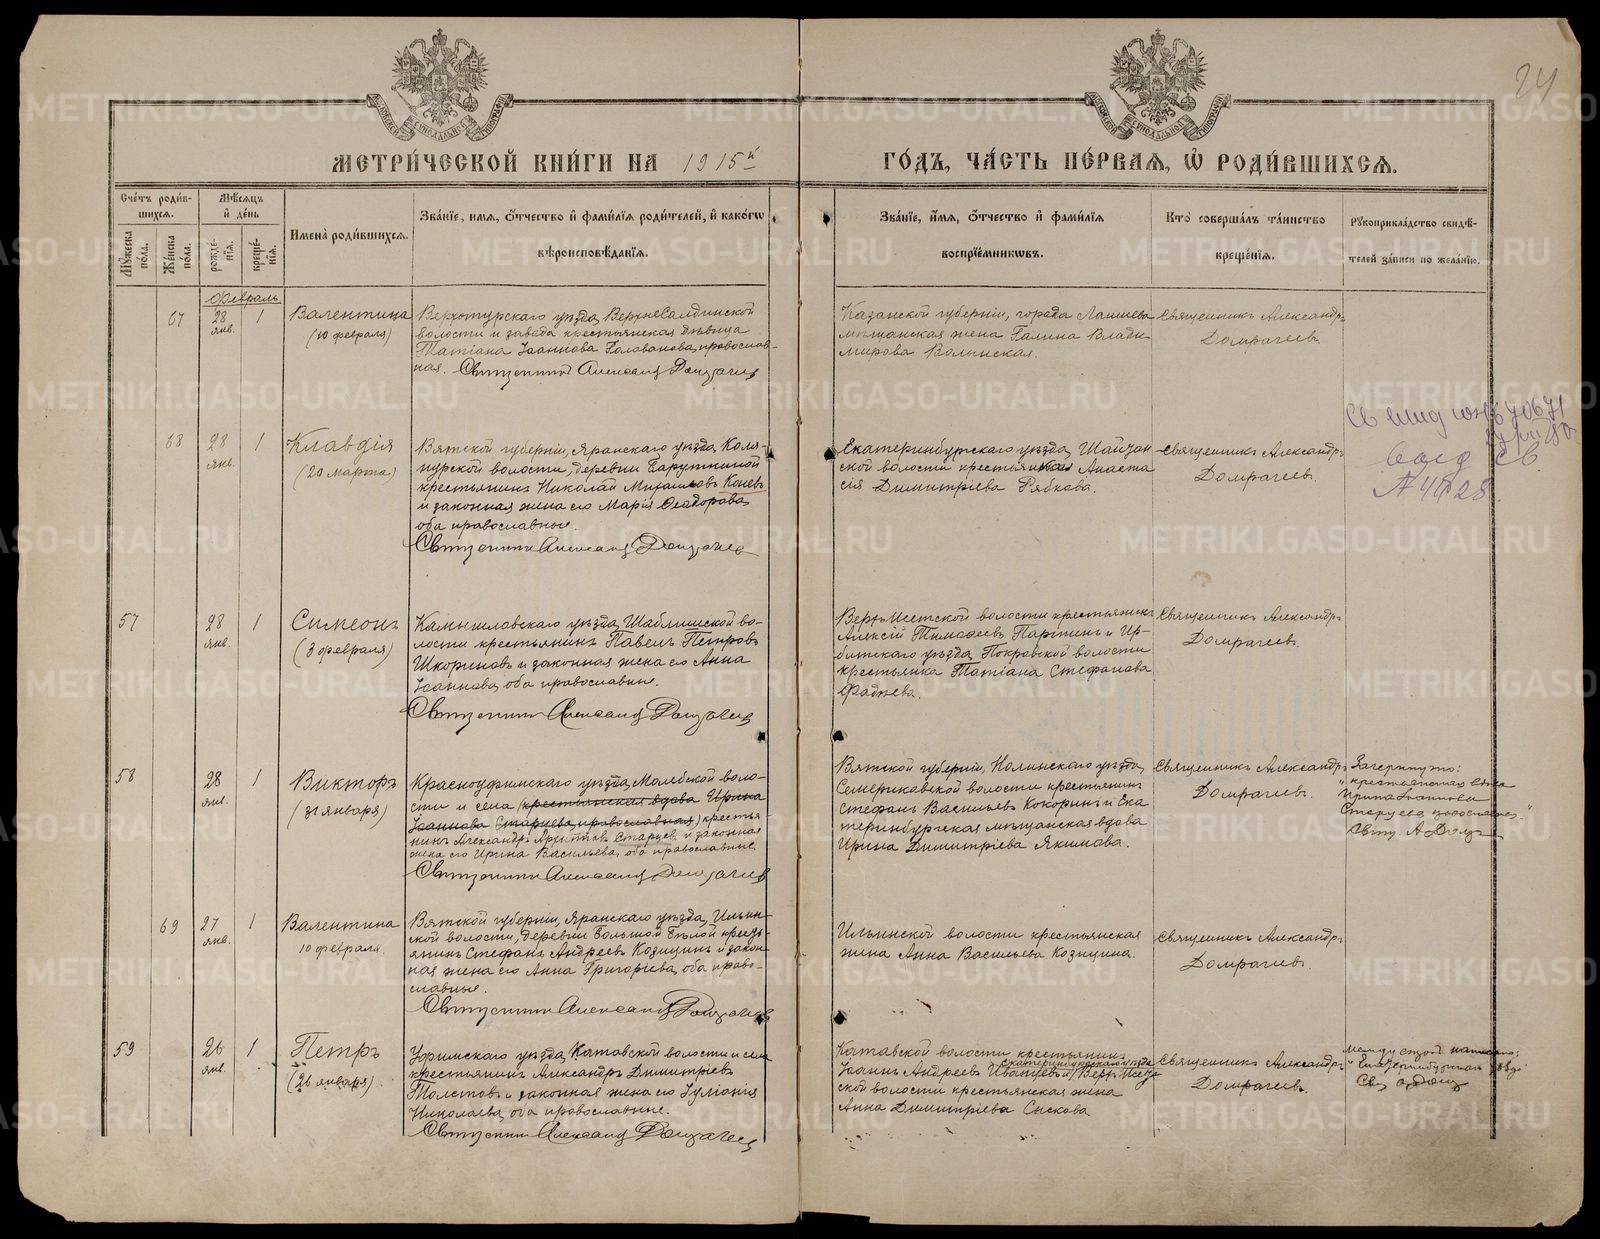 24
МЕТРИ́ЧЕСКОЙ КНИ́ГИ НА 1915й
ГО́ДЪ, ЧА́СТЬ ПЕ́РВАЯ, Ѡ РОДИ́ВШИХСЯ.
Сче́тъ роди́в-
шихся.
Мѣ́сяцъ
и́ де́нь
Мꙋ́жеска по́ла.
Же́нска по́ла.
рожде́-
нїя.
креще́-
нїя.
Имена̀ роди́вшихся.
Зва́нїе, имя, ѻ҆́тчество и҆ фами́лїя роди́телей, и҆ како́гѡ
вѣроисповѣ́данїя.
Зва́нїе, и҆́мя, ѻ҆́тчество и҆ фами́лїя
воспрїе́мникѡвъ.
Кто̀ соверша́лъ та́инство
креще́нїя.
Рꙋкоприкла́дство свидѣ́-
телей за́писи по жела́нїю.
Февраль
67
28
янв.
1
Валентина
(10 февраля)
Верхотурскаго уѣзда, Верхнесалдинской
волости и завода крестьянская дѣвица
Татіана Іоаннова Голованова, православ-
ная. Священникъ Александръ Домрачевъ
Казанской губерніи, города Лаишева
мѣщанская жена Галина Влади-
мирова Волынская.
Священникъ Александръ
Домрачевъ.
68
28
янв.
1
Клавдія
(20 марта)
Вятской губерніи, Яранскаго уѣзда, Коля-
нурской волости, деревни
крестьянинъ Николай Михаиловъ Коневъ
и законная жена его Марія Ѳеодорова,
оба православные.
Священникъ Александръ Домрачевъ
Екатеринбургскаго уѣзда, Шайтан
ской волости крестьянская Анаста
сія Димитріева Рябкова.
Священникъ Александръ
Домрачевъ.
57
28
янв.
1
Симеонъ
(3 февраля)
Камышловскаго уѣзда, Шаблишской во-
лости крестьянинъ Павелъ Петровъ
Шкориновъ и законная жена его Анна
Іоаннова, оба православные.
Священникъ Александръ Домрачевъ
Верхъ-Исетской волости крестьянинъ
Алексій Тимоѳеевъ и Ир-
битскаго уѣзда, Покровской волости
крестьянка Татіана Стефанова
Фадѣева.
Священникъ Александръ
Домрачевъ.
58
28
янв.
1
Викторъ
(31 января)
Красноуфимскаго уѣзда, Молебской воло-
сти и села (крестьянская вдова Ирина
Іоаннова Старцева, православная) крестья-
нинъ Александръ Старцев и законная
жена его Ирина Васильева, оба православные.
Священникъ Александръ Домрачевъ
Вятской губерніи, Нолинскаго уѣзда,
волости крестьянинъ
Стефанъ Васильевъ Кокоринъ и Ека
теринбургская мѣщанская вдова
Ирина Димитріева Якимова.
Священникъ Александръ
Домрачевъ.
Зачеркнуто:
"крестьянская вдова
Ирина Іоаннова
Старцева, православная"
Свящ. А. Домр
69
27
янв.
1
Валентина
10 февраля.
Вятской губерніи, Яранскаго уѣзда, Ильин-
ской волости, деревни Большой кресть-
янинъ Стефанъ Андреевъ Козицинъ и закон-
ная жена его Анна Григорьева, оба право-
славные.
Священникъ Александръ Домрачевъ
Ильинской волости крестьянская
жена Анна Васильева Козицина.
Священникъ Александръ
Домрачевъ.
59
26
янв.
1
Петръ
(26 января)
Уфимскаго уѣзда, Катавской волости и села
крестьянинъ Александръ Димитріевъ
Толстовъ и законная жена его Іуліанія
Николаева, оба православные.
Священникъ Александръ Домрачевъ
Катавской волости крестьянинъ
Екатеринбургскаго уѣзда
Іоаннъ Андреевъ и Верх-Исет
ской волости крестьянская жена
Анна Димитріева Сыскова.
Священникъ Александръ
Домрачевъ.
между строк написано:
"Екатеринбургскаго уѣзда"
METRIKI.GASO-URAL.RU